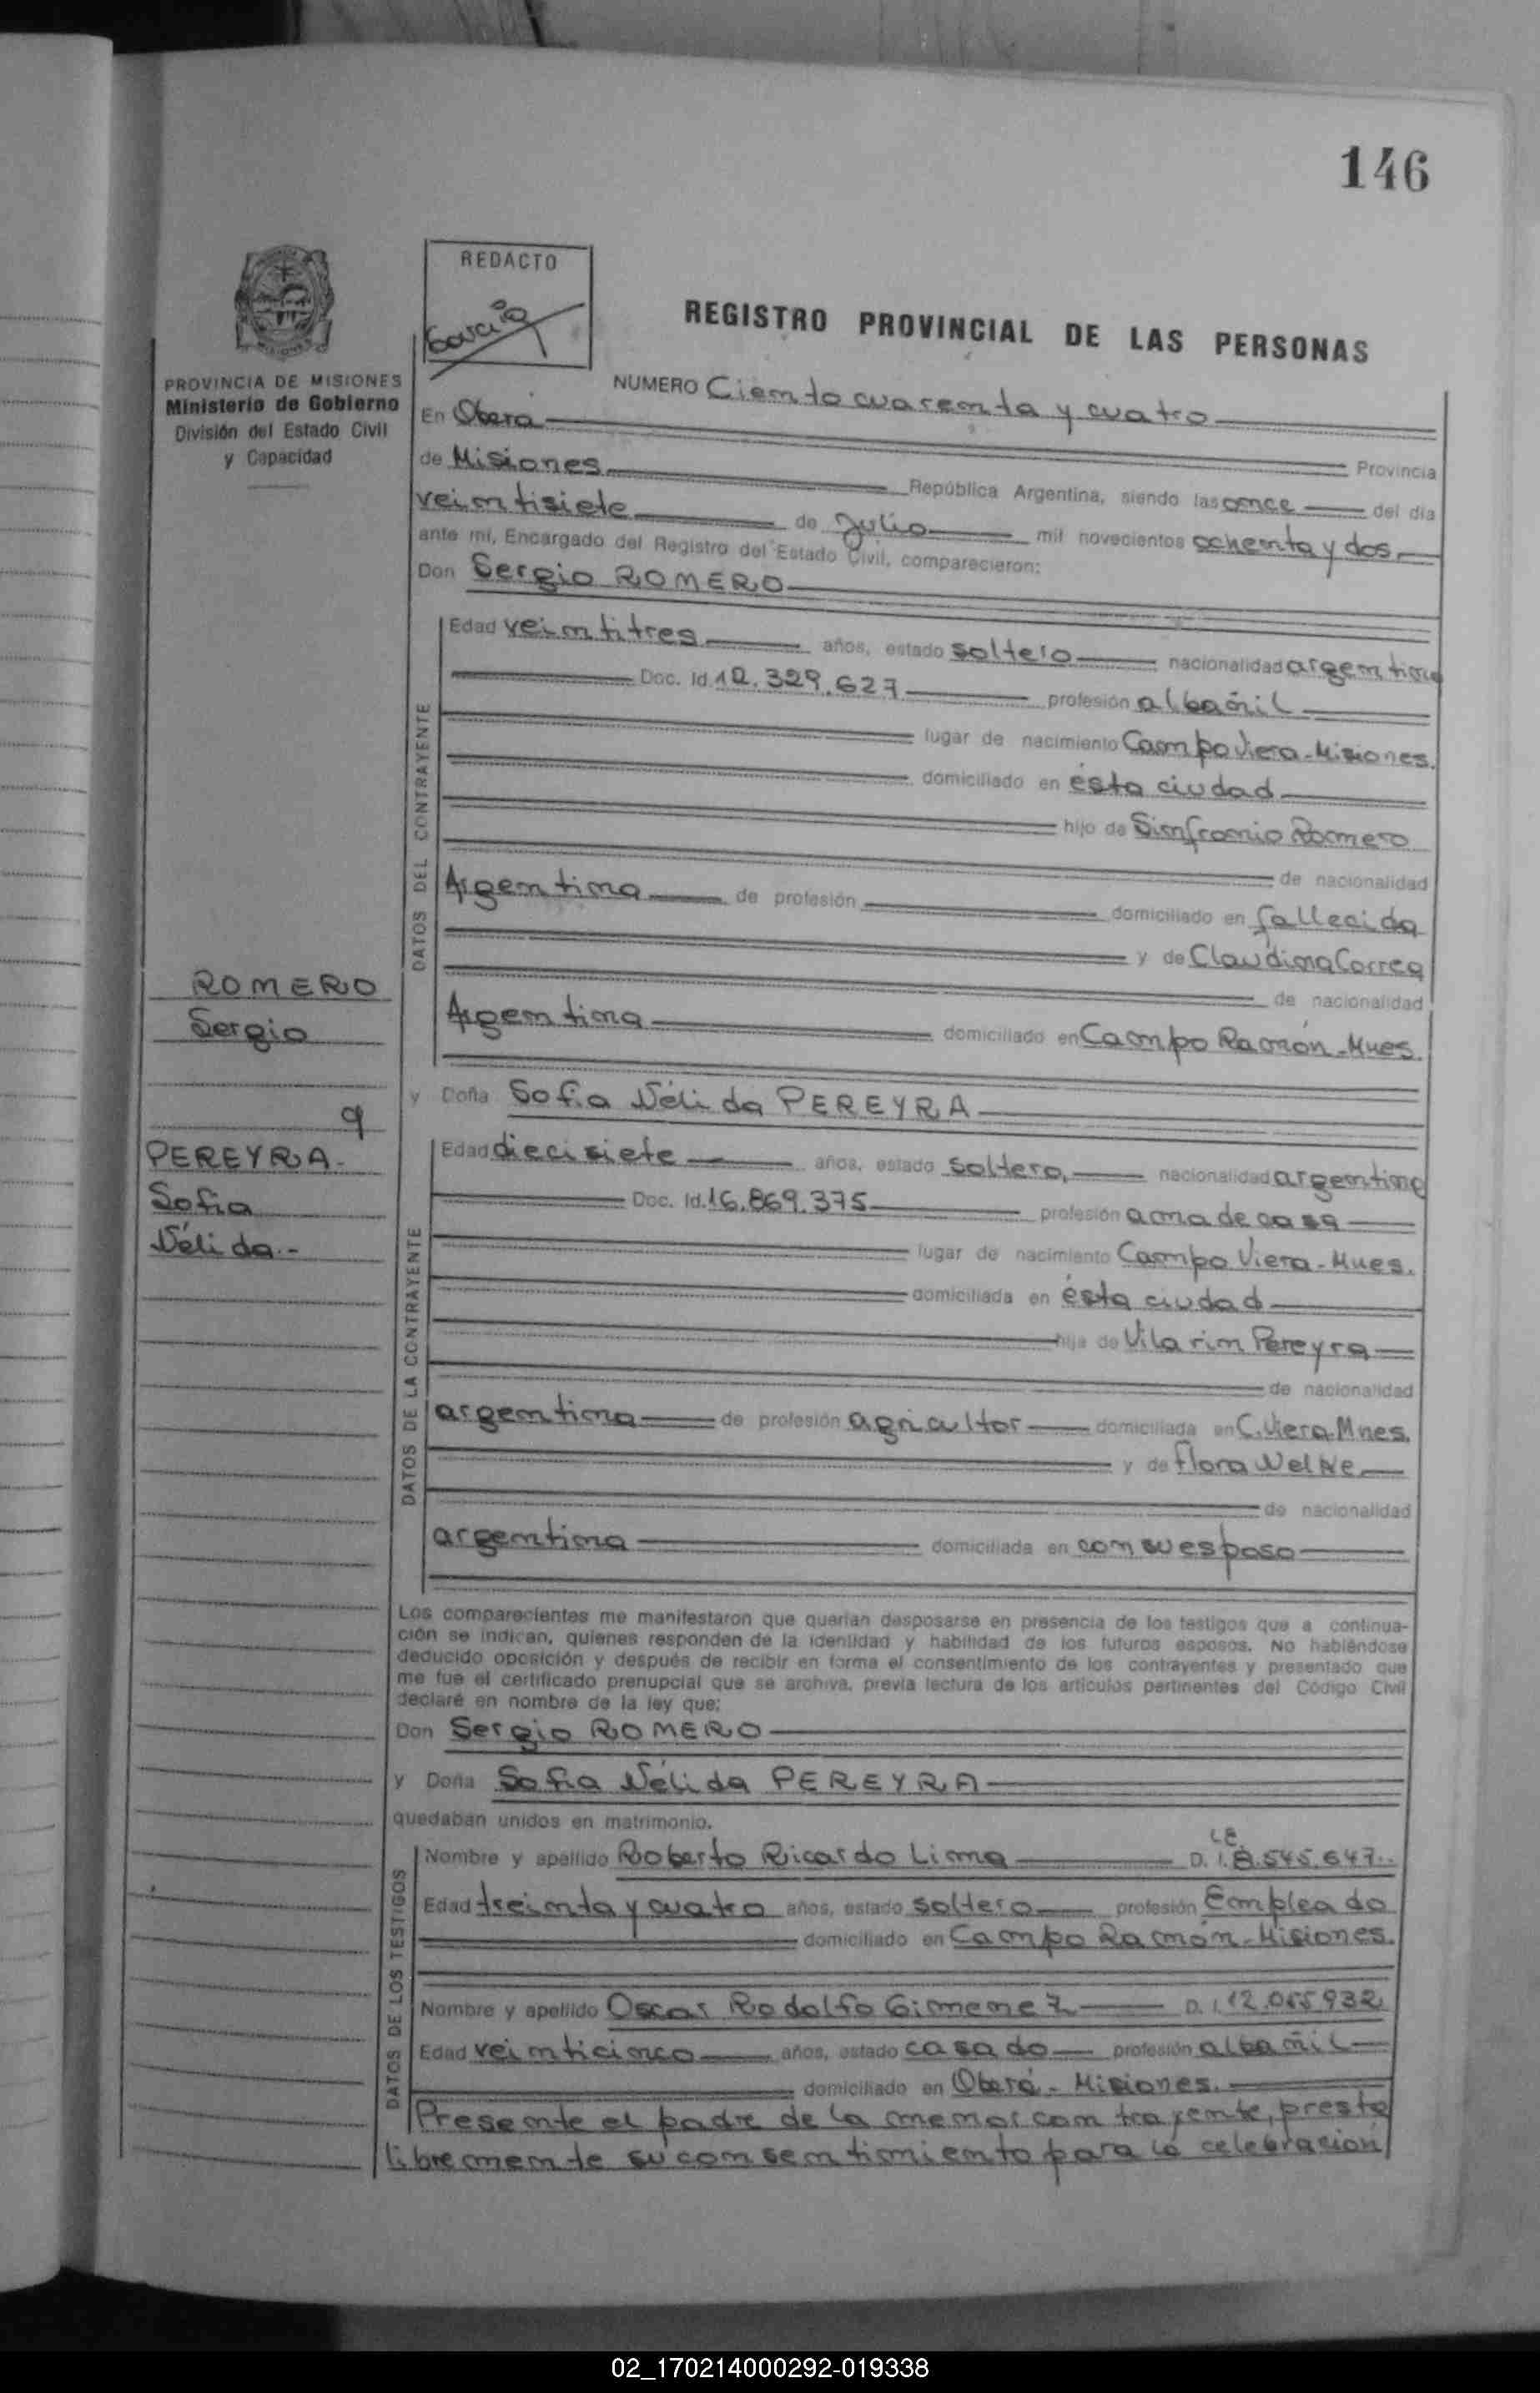 146
REDACTO
Garcia
REGISTRO PROVINCIAL DE LAS PERSONAS
PROVINCIA DE MISIONES
Ministerio de Gobierno
División del Estado Civil
y Capacidad
NUMERO Ciento cuarenta y cuatro
En Oberá Provincia
de Misiones República Argentina, siendo las once del día
veintisiete de Julio mil novecientos ochenta y dos
ante mí, Encargado del Registro del Estado Civil, comparecieron:
Don Sergio ROMERO
DATOS DEL CONTRAYENTE
Edad veintitres años, estado soltero nacionalidad argentina
Doc. Id. 12.329.627 profesión albañil
lugar de nacimiento Campo Viera - Misiones.
domiciliado en ésta ciudad
hijo de Sinfronio Romero
de nacionalidad
Argentina de profesión domiciliado en fallecida
y de Claudina Correa
de nacionalidad
Argentina domiciliado en Campo Ramón - Mnes.
ROMERO
Sergio
y
PEREYRA -
Sofia
Nélida.-
y Doña Sofia Nélida PEREYRA
DATOS DE LA CONTRAYENTE
Edad diecisiete años, estado soltera, nacionalidad argentina
Doc. Id. 16.869.375 profesión ama de casa
lugar de nacimiento Campo Viera - Mnes.
domiciliada en ésta ciudad
hija de Vilarim Pereyra
de nacionalidad
argentina de profesión agricultor domiciliada en C. Viera Mnes.
y de Flora Nelke
de nacionalidad
argentina domiciliada en con su esposo
Los comparecientes me manifestaron que querían desposarse en presencia de los testigos que a continua-
ción se indican, quienes responden de la identidad y habilidad de los futuros esposos. No habiéndose
deducido oposición y después de recibir en forma el consentimiento de los contrayentes y presentado que
me fue el certificado prenupcial que se archiva, previa lectura de los artículos pertinentes del Código Civil
declaré en nombre de la ley que:
Don Sergio ROMERO
y Doña Sofia Nélida PEREYRA
quedaban unidos en matrimonio.
DATOS DE LOS TESTIGOS
Nombre y apellido Roberto Ricardo Lima LE D. I. 8.545.647.-
Edad treinta y cuatro años, estado soltero profesión Empleado
domiciliado en Campo Ramón - Misiones.
Nombre y apellido Oscar Rodolfo Gimenez D. I. 12.065.932
Edad veinticinco años, estado casado profesión albañil
domiciliado en Oberá - Misiones.
Presente el padre de la menor contrayente, presta
libremente su consentimiento para la celebración
02_170214000292-019338